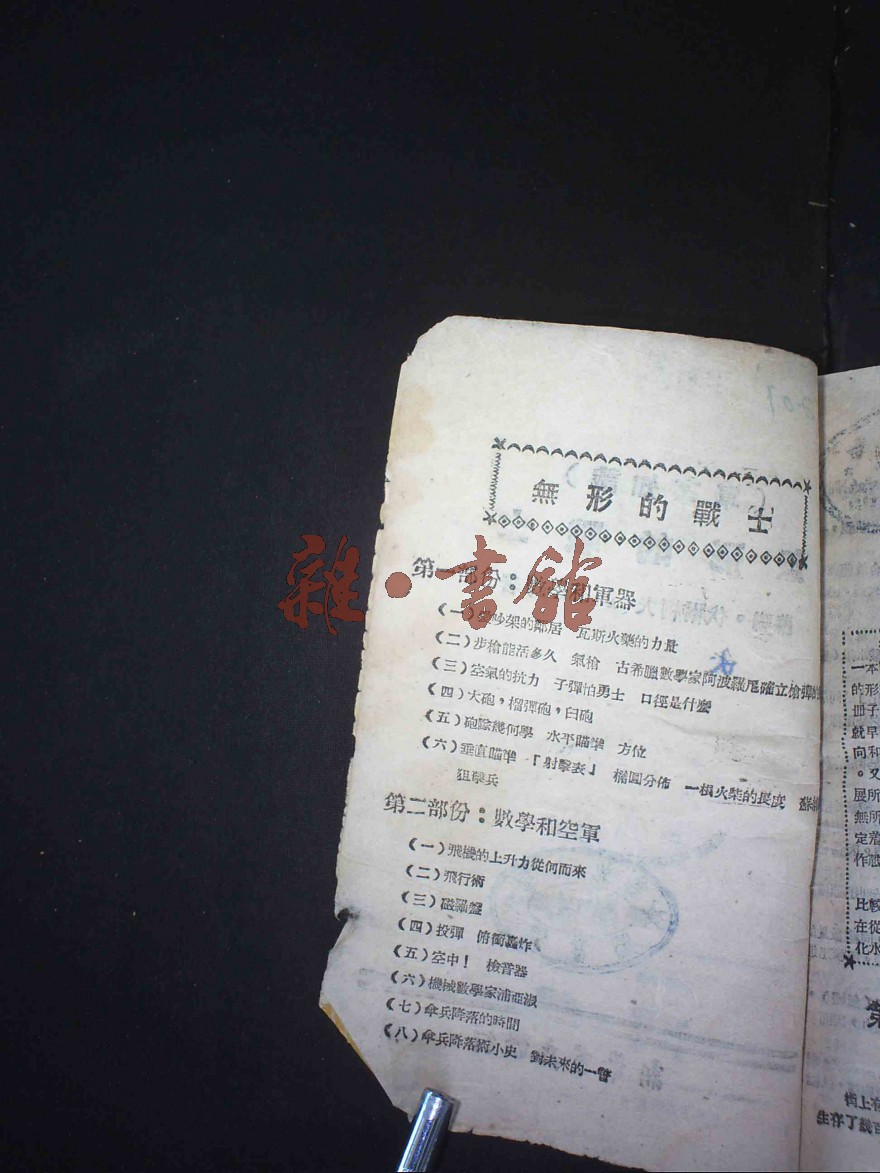 無形的戰士
第一部份：數學和軍器
（一）愛吵架的鄰居　瓦斯火藥的力量
（二）步槍能活多久　氣槍　古希臘數學家阿波羅尼確立槍彈的
（三）空氣的抗力　子彈怕勇士　口徑是什麼
（四）大砲，榴彈砲，臼砲
（五）砲隊幾何學　水平瞄準　方位
（六）垂直瞄準　「射擊表」　橢圓分佈　一根火柴的長度　蘇聯
狙擊兵
第二部份：數學和空軍
（一）飛機的上升力從何而來
（二）飛行術
（三）磁羅盤
（四）投彈　俯衝轟炸
（五）空中！　檢音器
（六）機械數學家浦亞淑
（七）傘兵降落的時間
（八）傘兵降落術小史　對未來的一瞥
雜·書館
一本
的形
冊子
就早
向和
。又
展所
無所
定着
作戰
比較
在從
化水
第
橋上有
生存了幾百